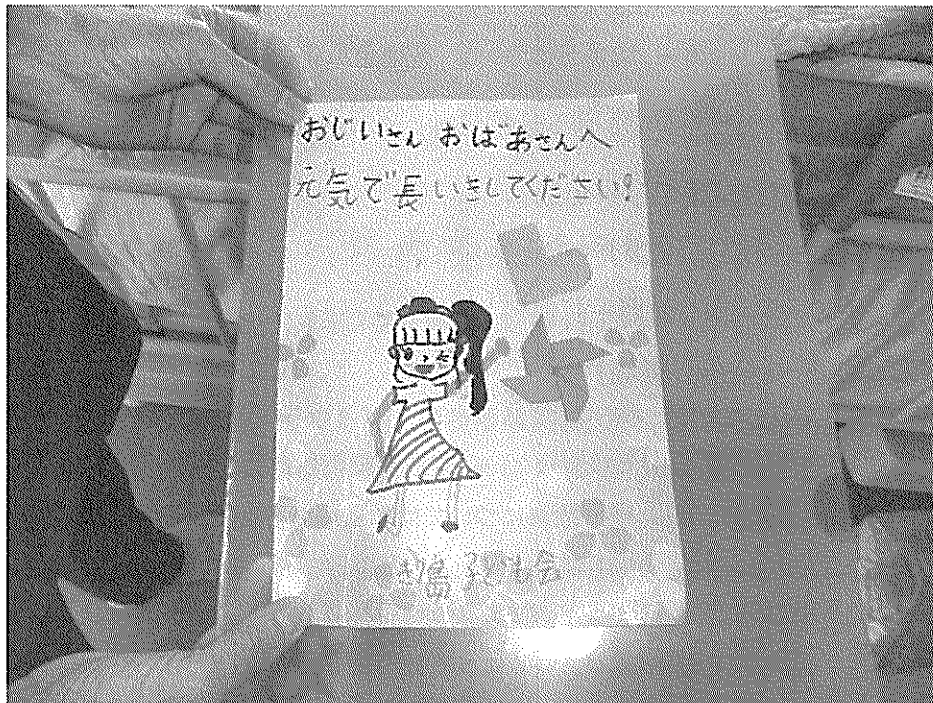 おじいさん おばあさんへ
元気で長いきしてください!
子ども会